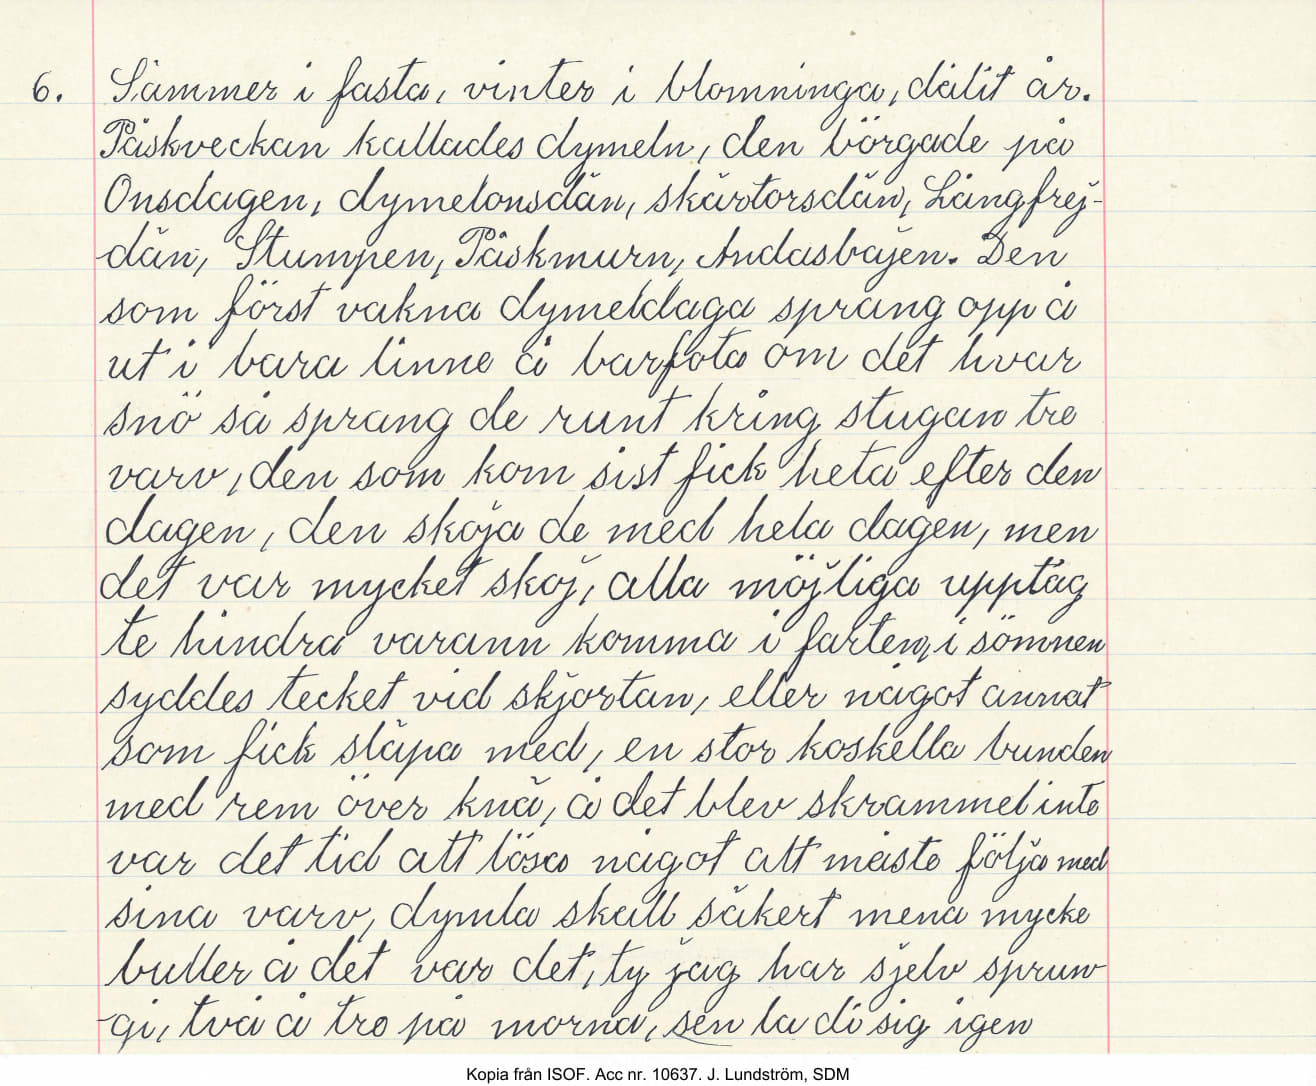 6. Såmmer i fasta, vinter i blomninga, dålit år.
Påskveckan kallades dymeln, den börgade på
Onsdagen, dymelonsdän, skärtorsdän, Långfrej-
dän, Stumpen, Påskmurn, Andasbajen. Den
som först vakna dymeldaga sprang opp å
ut i bara linne å barfota om det hvar
snö så sprang de runt kring stugan tre
varv, den som kom sist fick heta efter den
dagen, den skoja de med hela dagen, men
det var mycket skoj, alla möjliga upptåg
te hindra varann komma i farten, i sömnen
syddes tecket vid skjortan, eller något annat
som fick släpa med, en stor koskella bunden
med rem över knä, å det blev skrammel inte
var det tid att lösa något att måste följa med
sina varv, dymla skall säkert mena mycke
buller å det var det, ty jag har sjelv sprun-
gi, två å tre på morna, sen la di sig igen
Kopia från ISOF. Acc nr. 10637. J. Lundström, SDM